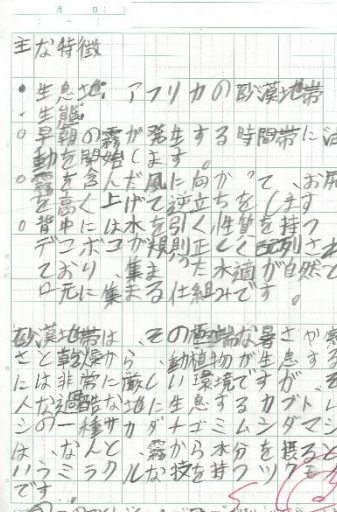 月 日( )
主な特徴
・生息地: アフリカの砂漠地帯
・生態:
○早朝の霧が発生する時間帯に活
動を開始します。
○霧を含んだ風に向かって、お尻
を高く上げて逆立ちをします
○背中には水を引く性質を持つ
デコボコが規則正しく配列され
ており、集まった水滴が自然と
口元に集まる仕組みです。
砂漠地帯は、その極端な暑さや寒
さと乾燥から、動植物が生息する
には非常に厳しい環境ですが、そ
んな過酷な地に生息するカブトム
シの一種サカダチゴミムシダマシ
は、なんと、霧から水分を摂ると
いうミラクルな技を持つ
です